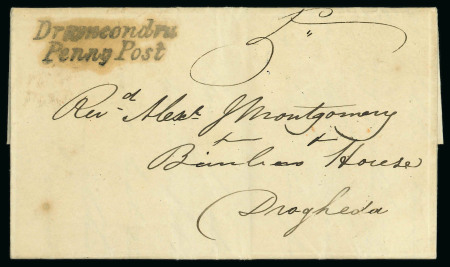 Drumcondra
Penny Post
5
Revd Alexr J Montgomery
House
Drogheda